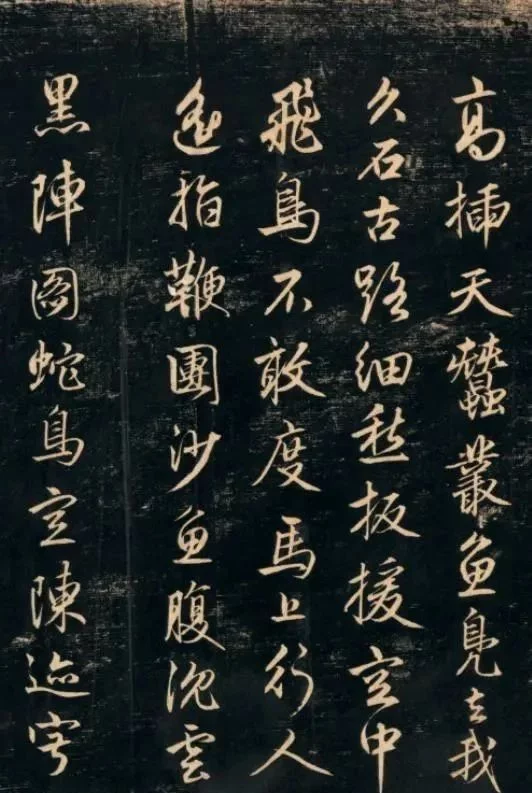 高插天蠶叢魚鳧去我
久石古路細愁扳援空中
飛鳥不敢度馬上行人
遙指鞭團沙魚腹沉雲
黑陣圖蛇鳥空陳迹穹